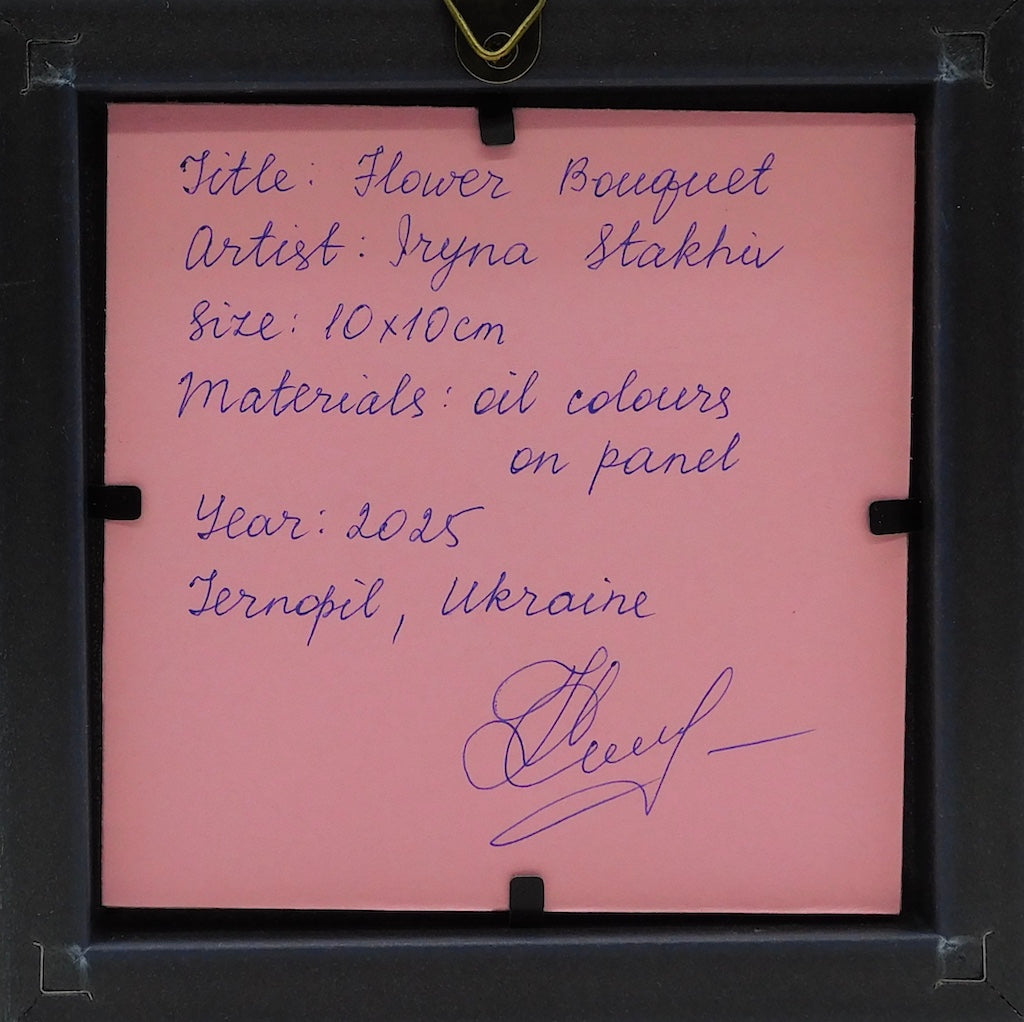 Title: Flower Bouquet
Artist: Iryna Stakhiv
Size: 10x10cm
Materials: oil colours
on panel
Year: 2025
Ternopil, Ukraine